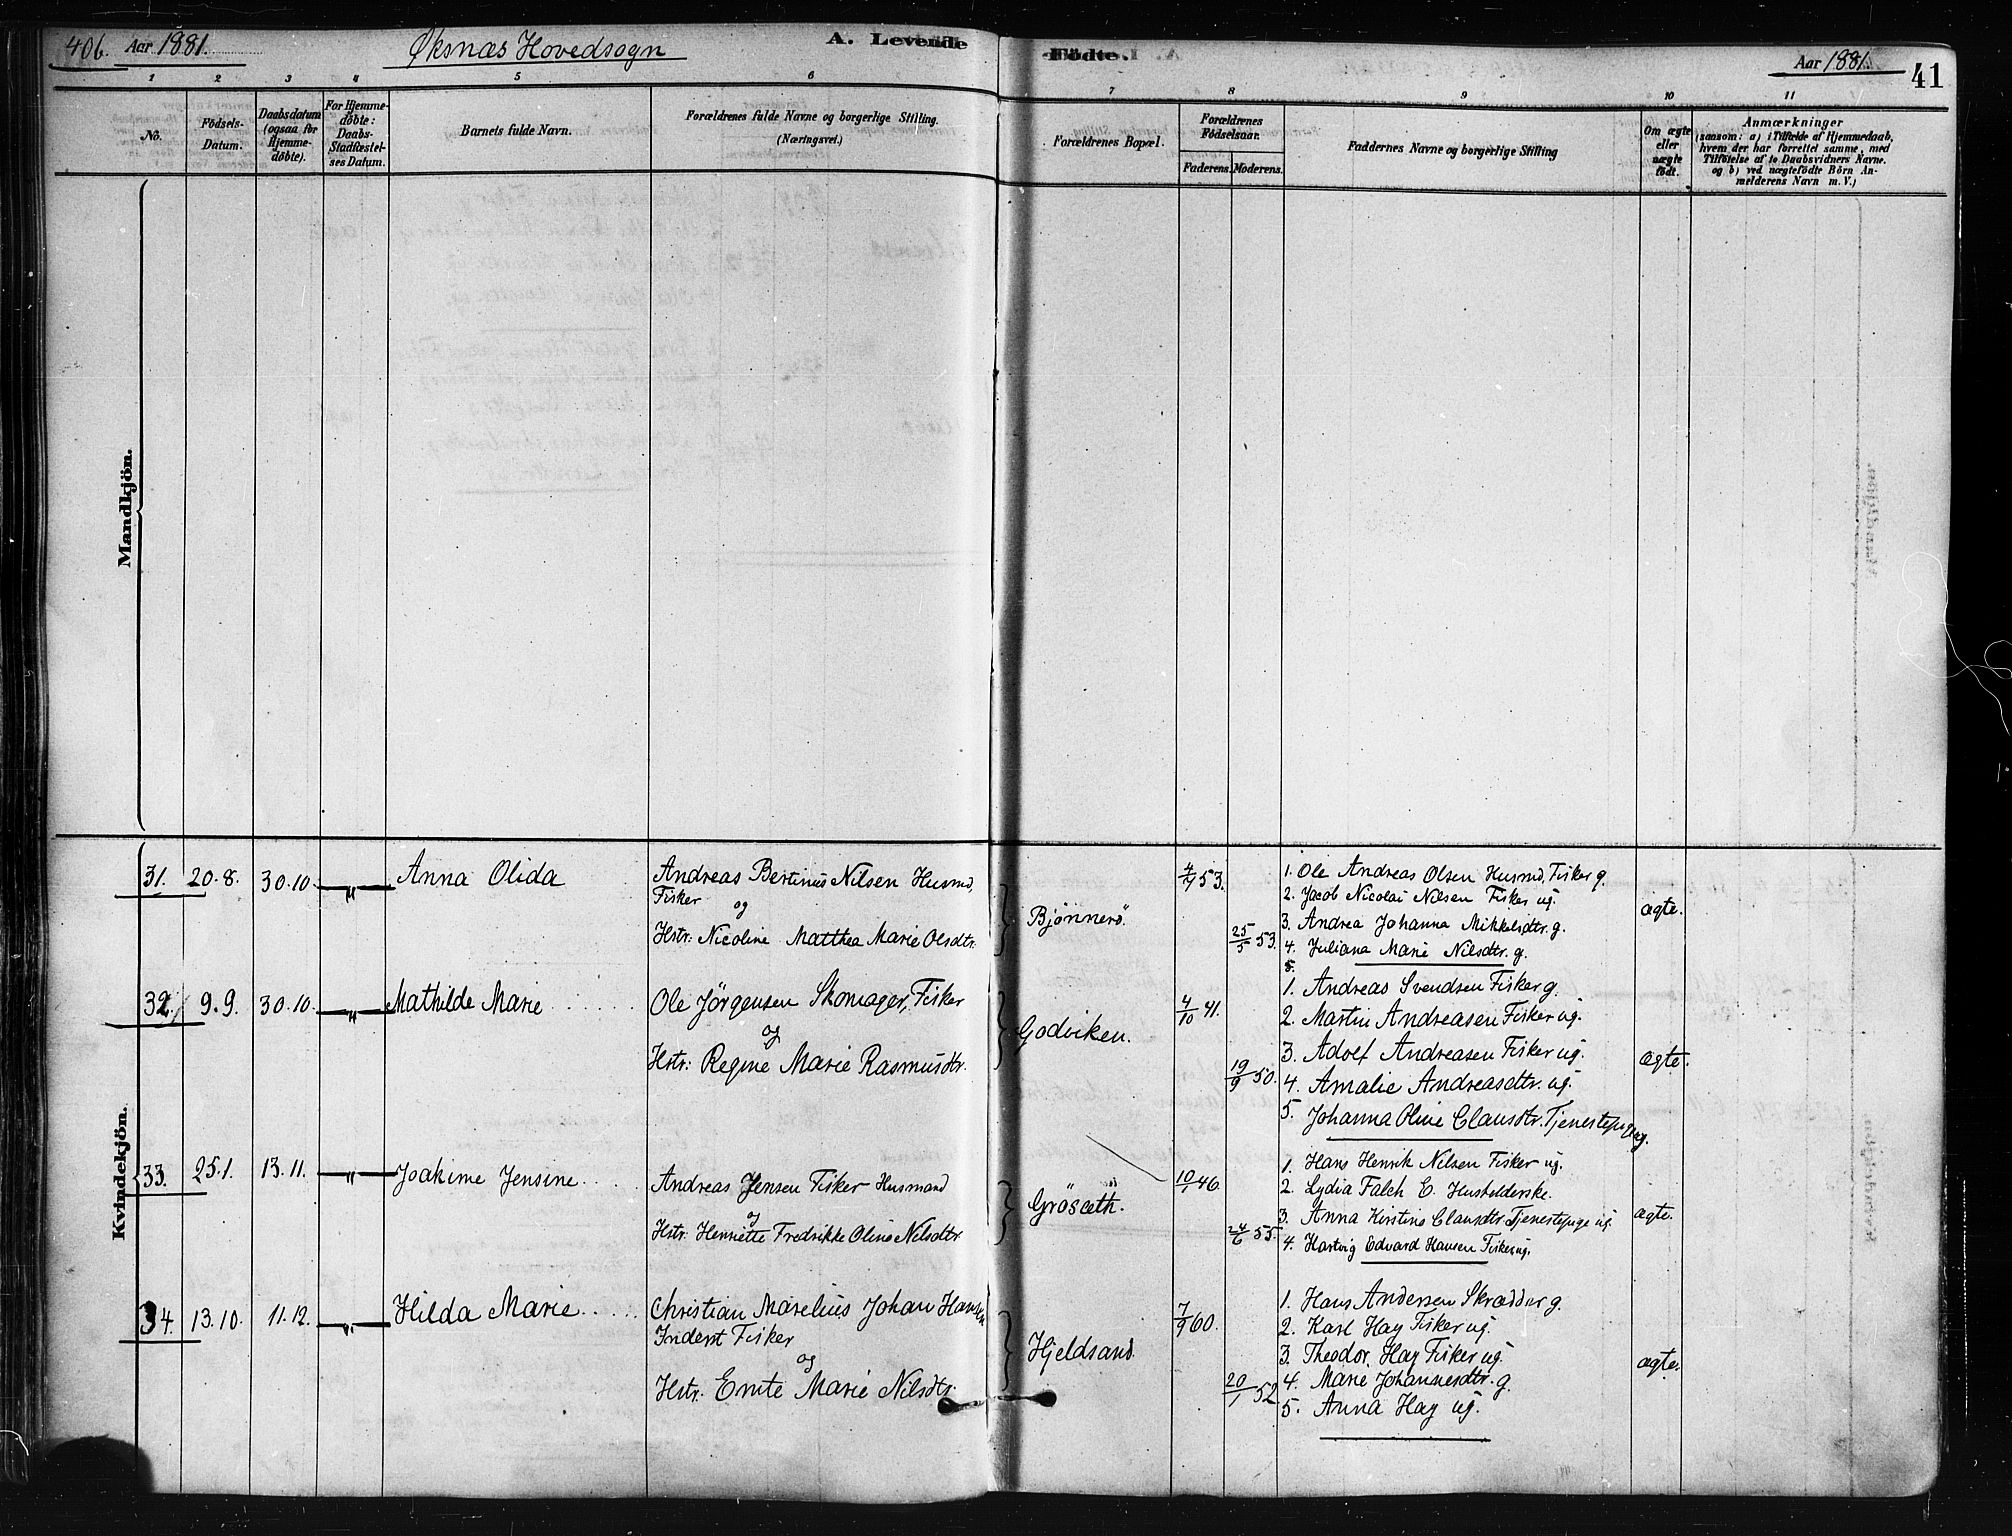 406. Aar 1881. Øksnæs Hovedsogn A. Levende Födte. Aar 1881. 41
1 2 3 4 5 6 7 8 9 10 11
No. Födsels-Datum. Daabsdatum (ogsaa for Hjemme-döbte). For Hjemme-döbte: Daabs-Stadfæstel-ses Datum. Barnets fulde Navn. Forældrenes fulde Navne og borgerlige Stilling. (Næringsvei.) Forældrenes Bopæl. Forældrenes Födselsaar. Faderens. Moderens. Faddernes Navne og borgerlige Stilling Om ægte eller uægte födt. Anmærkninger
(saasom: a) i Tilfælde af Hjemmedaab,
hvem der har forrettet samme, med
Tilföielse af to Daabsvidners Navne.
og b) ved uægtefödte Börn An-
melderens Navn m. V.)
Mandkjön.
Kvindekjön.
31. 20.8. 30.10 " Anna Olida Andreas Bertinus Nilsen Husmd,
Fisker
og
Hstr: Nicoline Matthea Marie Olsdtr.
Bjønnerö. 4/7 53. 25/5 53.
1. Ole Andreas Olsen Husmd, Fisker g.
2. Jacob Nicolai Nilsen Fisker ug.
3. Andrea Johanna Mikkelsdtr. g.
4. Juliana Marie Nilsdtr. g.
5.
ægte.
32. 9.9. 30.10. " Mathilde Marie Ole Jörgensen Skomager, Fisker
og
Hstr: Regine Marie Rasmusdtr.
Godviken. 4/10 41. 19/9 50.
1. Andreas Svendsen Fisker g.
2. Martin Andreasen Fisker ug.
3. Adolf Andreasen Fisker ug.
4. Amalie Andreasdtr. ug.
5. Johanna Oline Clausdtr. Tjenestepige ug.
ægte.
33. 25.1. 13.11. " Joakime Jensine Andreas Jensen Fisker Husmand
og
Hstr: Henriette Fredrikke Oline Nilsdtr.
Gröseth. 10/1 46. 24/6 55.
1. Hans Henrik Nilsen Fisker ug.
2. Lydia Falch E. Husholderske.
3. Anna Kirstine Clausdtr. Tjenestepige ug.
4. Hartvig Edvard Hansen Fisker ug.
ægte.
34. 13.10. 11.12. " Hilda Marie Christian Marelius Johan Hansen
Inderst Fisker
og
Hstr. Emte Marie Nilsdtr.
Hjeldsand. 7/9 60. 20/1 52
1. Hans Andersen Skrædder g.
2. Karl Hay Fisker ug.
3. Theodor Hay Fisker ug.
4. Marie Johannesdtr. g.
5. Anna Hay ug.
ægte.